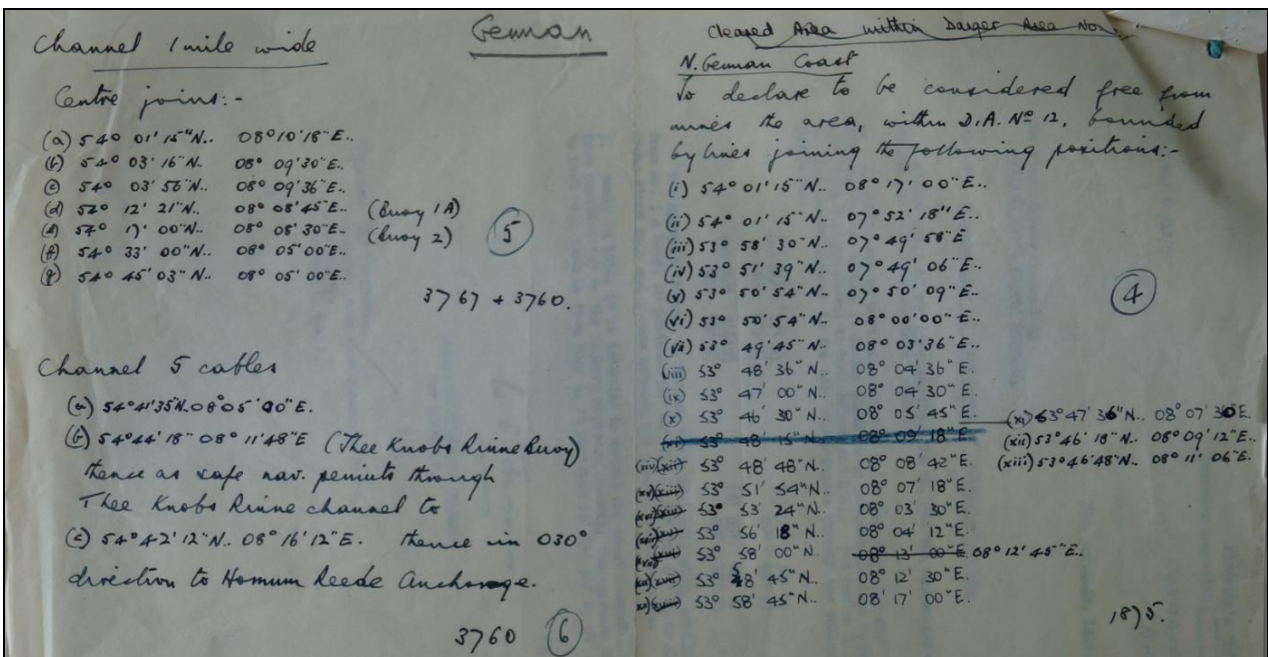 German
Channel 1 mile wide
Centre joins:-
(a) 54° 01' 15"N.. 08° 10' 18"E..
(b) 54° 03' 16"N. 08° 09' 30"E..
(c) 54° 03' 56"N.. 08° 09' 36"E..
(d) 54° 12' 21"N.. 08° 08' 45"E.. (Buoy 1A)
(e) 54° 17' 00"N.. 08° 08' 30"E.. (Buoy 2)
(f) 54° 33' 00"N.. 08° 05' 00"E..
(g) 54° 45' 03"N.. 08° 05' 00"E..
5
3767 + 3760.
Channel 5 cables
(a) 54° 41' 35"N. 08° 05' 00"E.
(b) 54° 44' 18" 08° 11' 48"E (Thee Knobs Rinne Buoy)
thence as safe nav. permits through
Thee Knobs Rinne channel to
(c) 54° 42' 12"N.. 08° 16' 12"E. thence in 030°
direction to Hornum Reede Anchorage.
3760 6
Cleared Area within Danger Area No.
N. German Coast
To declare to be considered free from
mines the area, within D.A. No 12, bounded
by lines joining the following positions:-
(i) 54° 01' 15"N.. 08° 17' 00"E..
(ii) 54° 01' 15"N.. 07° 52' 18"E..
(iii) 53° 58' 30"N.. 07° 49' 58"E
(iv) 53° 51' 39"N.. 07° 49' 06"E..
(v) 53° 50' 54"N.. 07° 50' 09"E..
(vi) 53° 50' 54"N.. 08° 00' 00"E..
(vii) 53° 49' 45"N.. 08° 03' 36"E..
(viii) 53° 48' 36"N.. 08° 04' 36"E.
(ix) 53° 47' 00"N.. 08° 04' 30"E.
(x) 53° 46' 30"N.. 08° 05' 45"E.
(xi) 53° 48' 15"N.. 08° 09' 18"E
(xi) 53° 47' 36"N.. 08° 07' 30"E.
(xii) 53° 46' 18"N.. 08° 09' 12"E..
(xiii) 53° 46' 48"N.. 08° 11' 06"E..
(xiv) (xii) 53° 48' 48"N.. 08° 08' 42"E.
(xv) (xiii) 53° 51' 54"N.. 08° 07' 18"E.
(xvi) (xiv) 53° 53' 24"N.. 08° 03' 30"E.
53° 56' 18"N.. 08° 04' 12"E.
53° 58' 00"N. 08° 13' 00"E. 08° 12' 45"E..
(xvii) 53° 58' 45"N.. 08° 12' 30"E.
(xviii) 53° 58' 45"N.. 08° 17' 00"E.
4
1875.